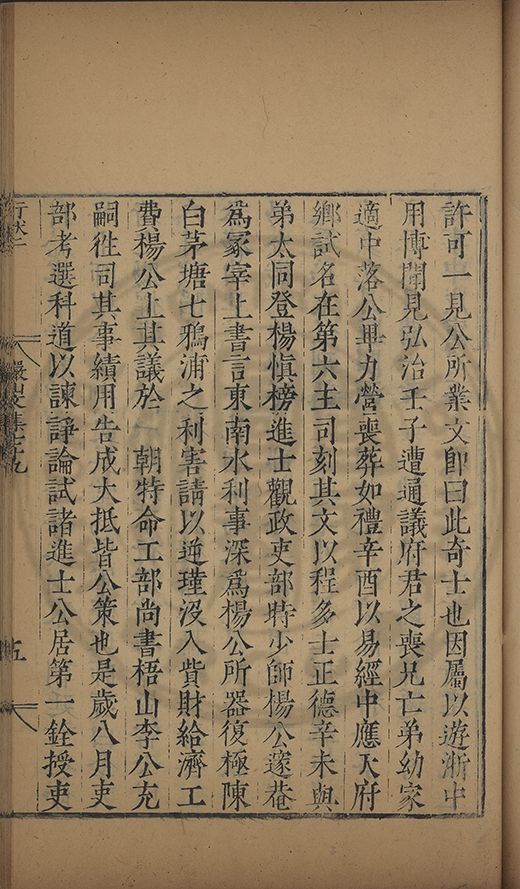 許可一見公所業文卽曰此奇士也因屬以遊浙中
用博聞見弘治壬子遭通議府君之喪兄亡弟幼家
適中落公畢力營喪葬如禮辛酉以易經中應天府
鄉試名在第六主司刻其文以程多士正德辛未與
弟太同登楊愼榜進士觀政吏部時少師楊公邃菴
爲冢宰上書言東南水利事深爲楊公所器復極陳
白茅塘七鴉浦之利害請以逆瑾沒入貲財給濟工
費楊公上其議於 朝特命工部尚書梧山李公充
嗣徃司其事績用告成大抵皆公策也是歲八月吏
部考選科道以諫諍論試諸進士公居第一銓授吏
行狀二